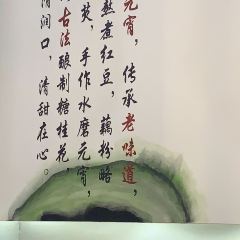 元宵，传承老味道，
熬煮红豆，藕粉略
芡，手作水磨元宵，
古法酿制糖桂花，
润口，清甜在心。